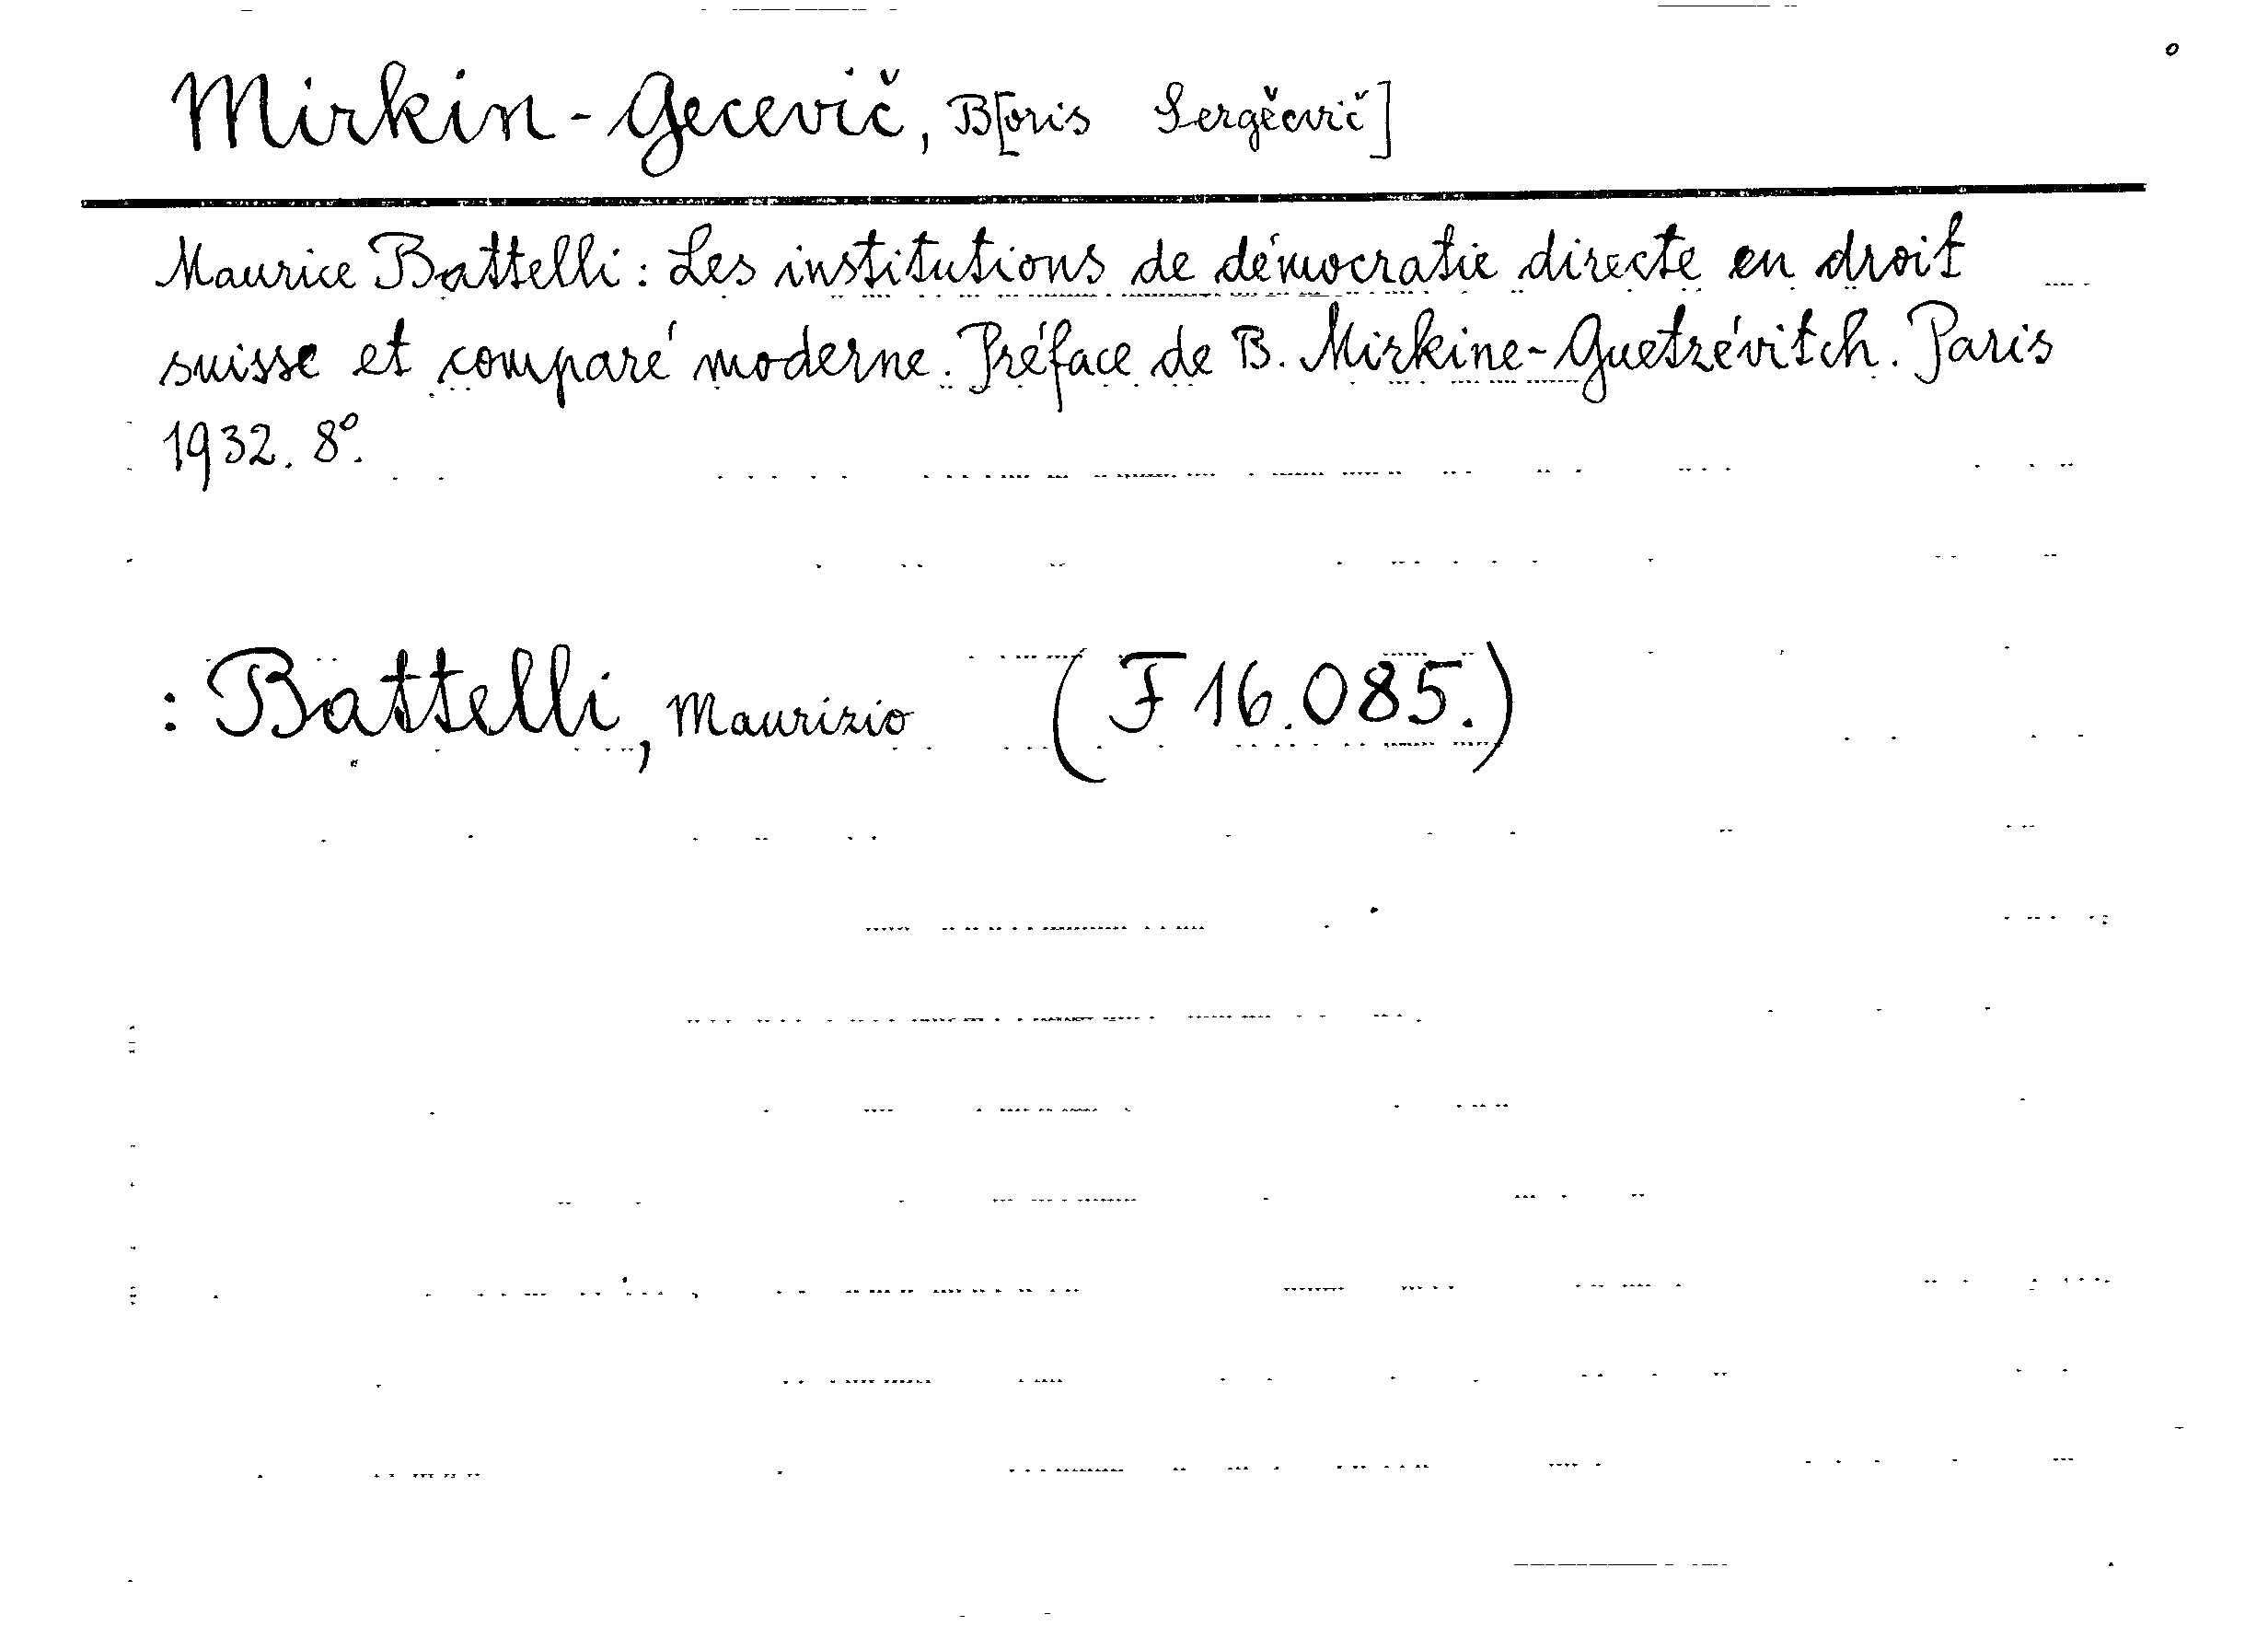 Mirkin-Gecevič, B[oris Sergěevič]
Maurice Battelli: Les institutions de démocratie directe en droit
suisse et comparé moderne. Préface de B. Mirkine-Guetzévitch. Paris
1932. 8º.
: Battelli, Maurizio (F 16.085.)